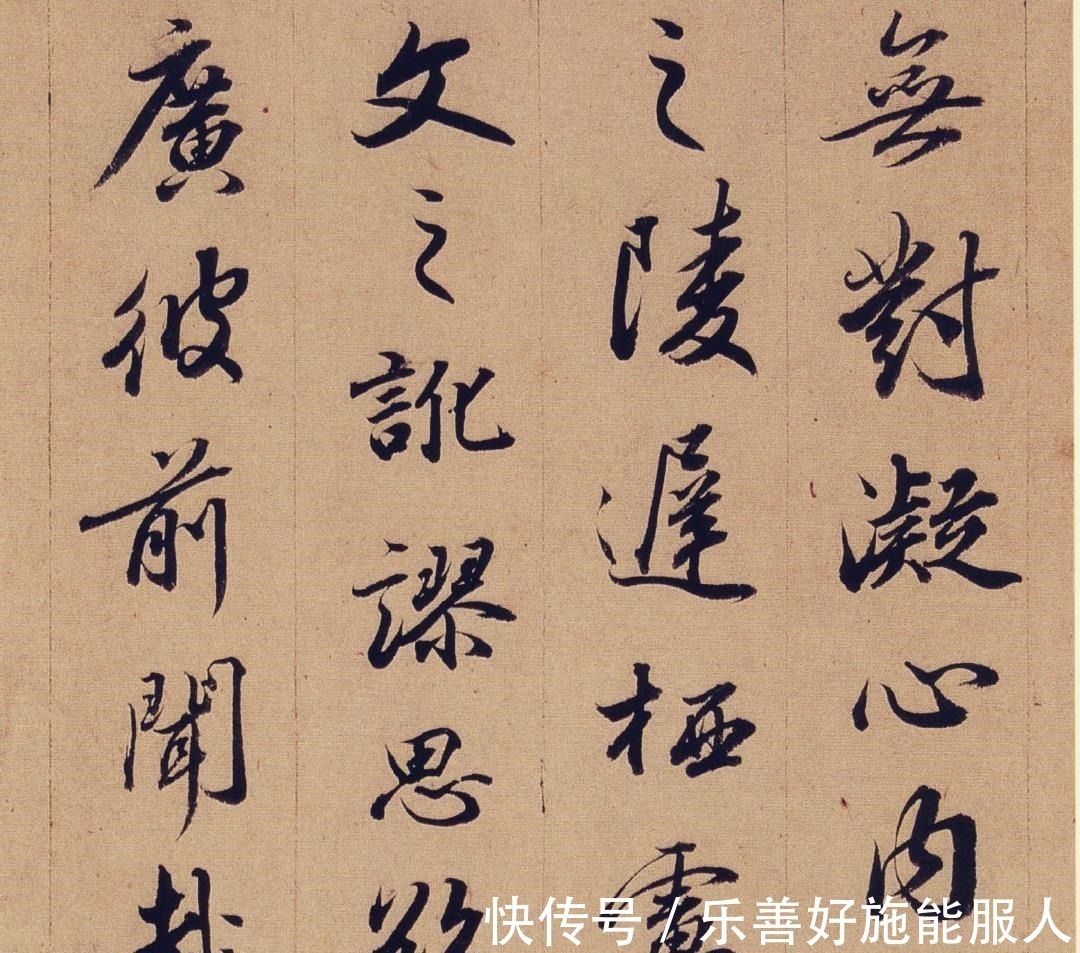 無對凝心内
之陵遲栖慮
文之訛謬思欲
廣彼前聞
快传号 / 乐善好施能服人